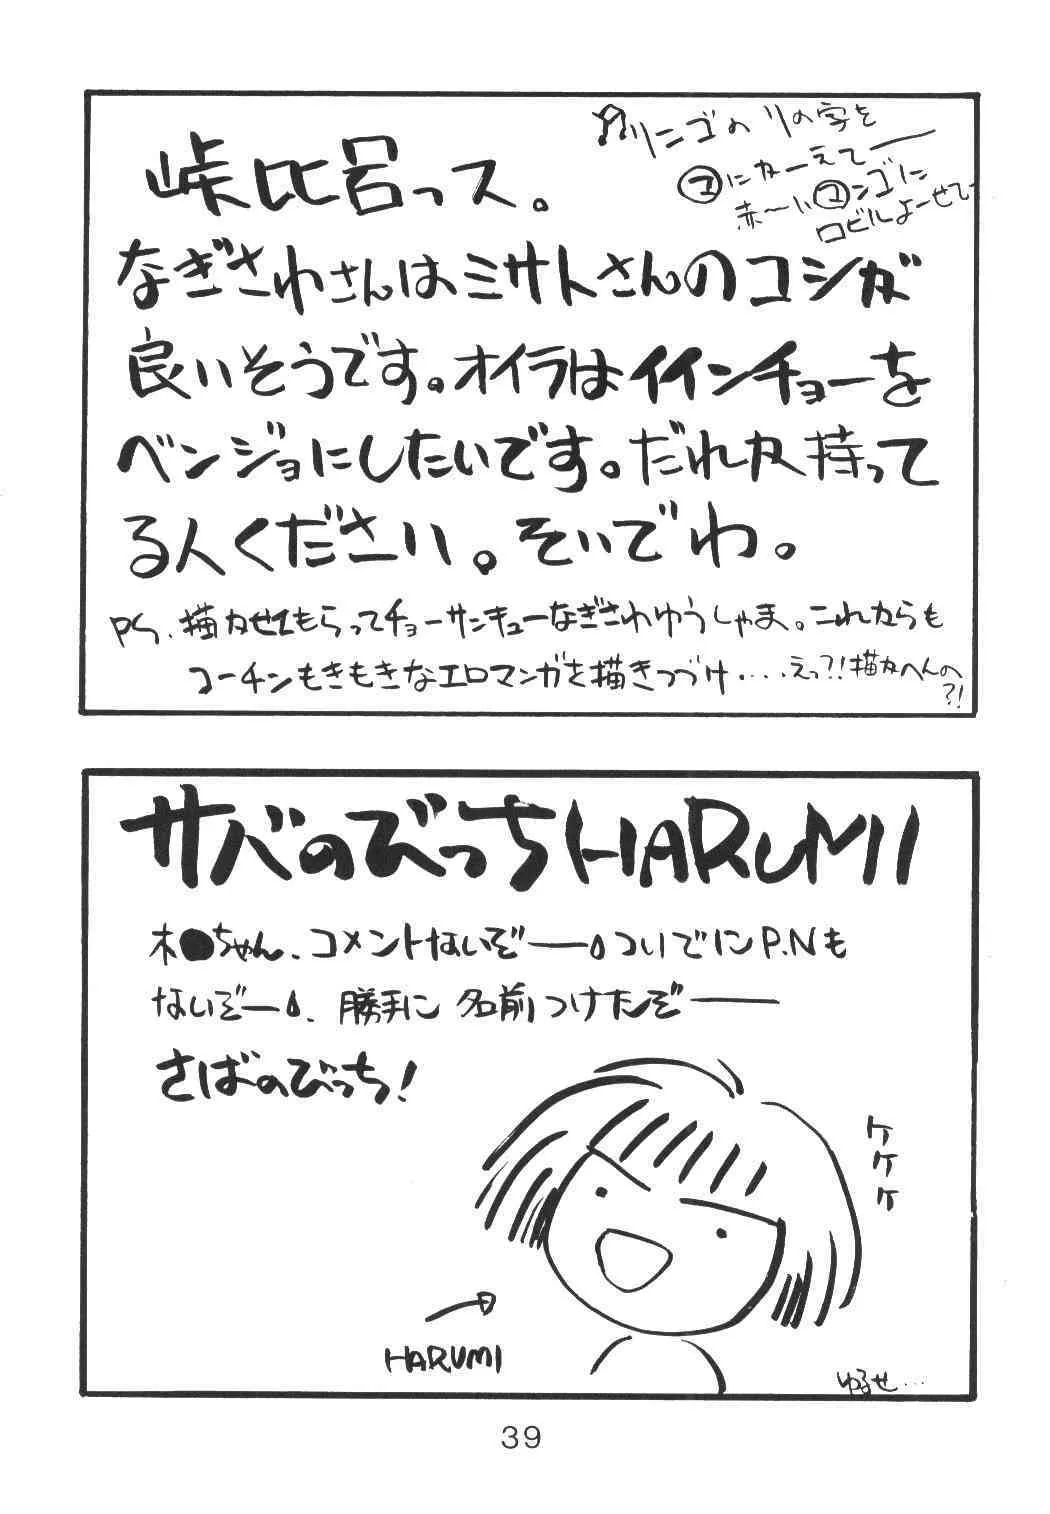 リンゴのリの字を
㋮にかーえてー
赤〜い㋮ンゴに
口ビルよーせてー
峠比呂っス。
なぎさわさんはミサトさんのコシが
良いそうです。オイラはイインチョーを
ベンジョにしたいです。だれか持って
る人ください。そいでわ。
PS、描かせてもらってチョーサンキューなぎさわゆうしゃま。これからも
コーチンもきもきなエロマンガを描きつづけ・・・・えっ?!描かへんの
?!
サバのびっちHARUMI
木●ちゃん、コメントないぞー。ついでにP.Nも
ないぞー。勝手に名前つけたぞー
さばのびっち!
ケケケ
HARUMI
ゆるせ…
39